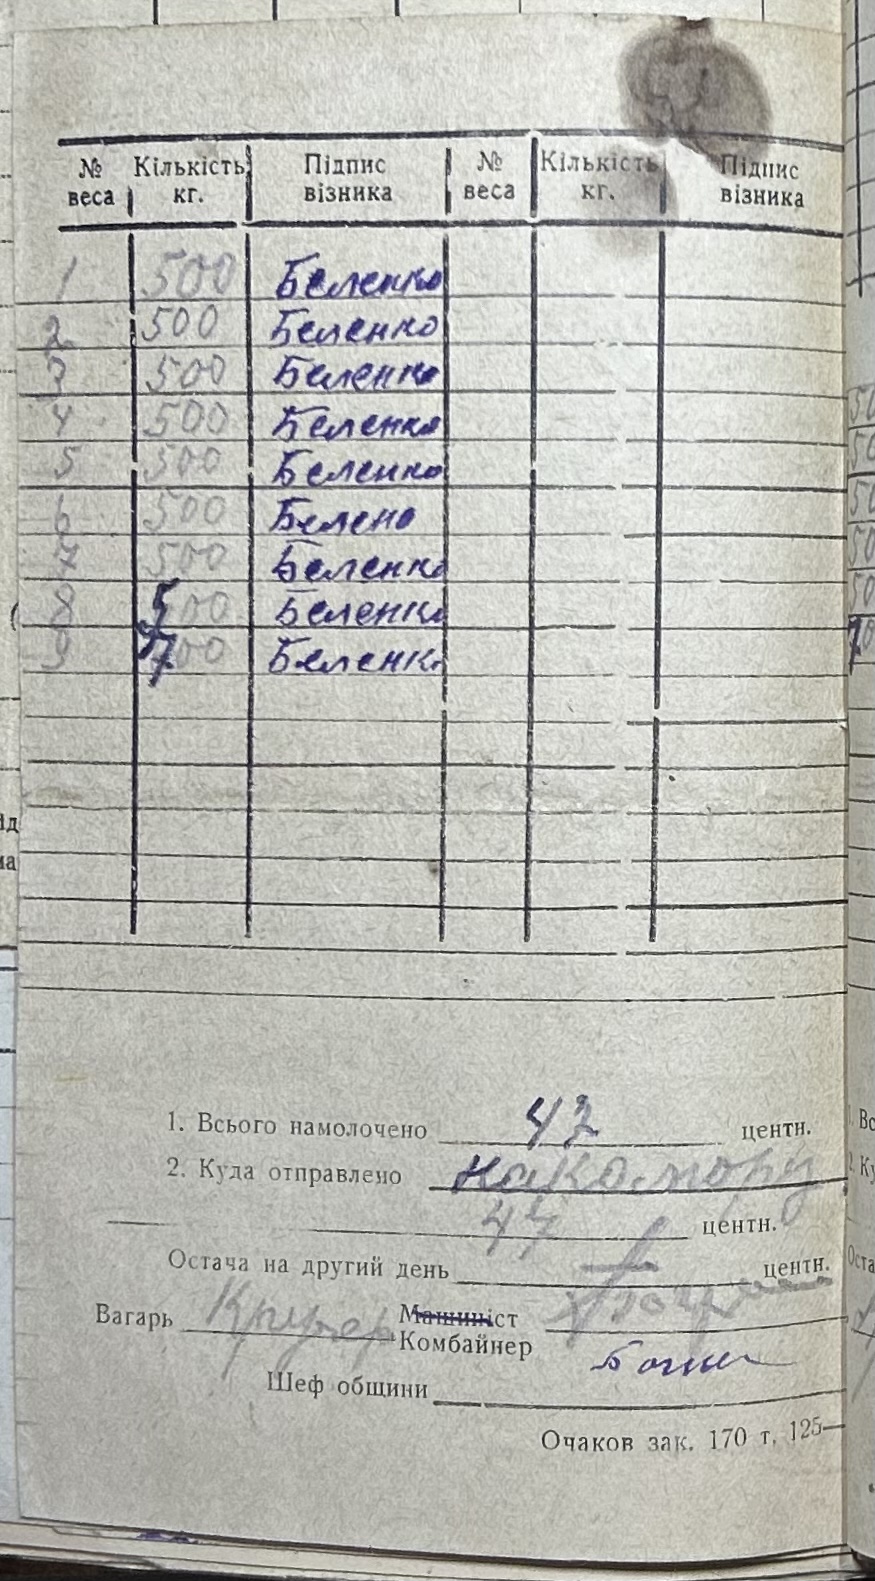 № веса Кількість кг. Підпис візника № веса Кількість кг. Підпис візника
1 500 Беленко
2 500 Беленко
3 500 Беленко
4 500 Беленко
5 500 Беленко
6 500 Белено
7 500 Беленко
8 500 Беленко
9 700 Беленко
1. Всього намолочено 47 центн.
2. Куда отправлено
47 центн.
Остача на другий день центн.
Вагарь Машиніст
Комбайнер
Шеф общини
Очаков зак. 170 т. 125